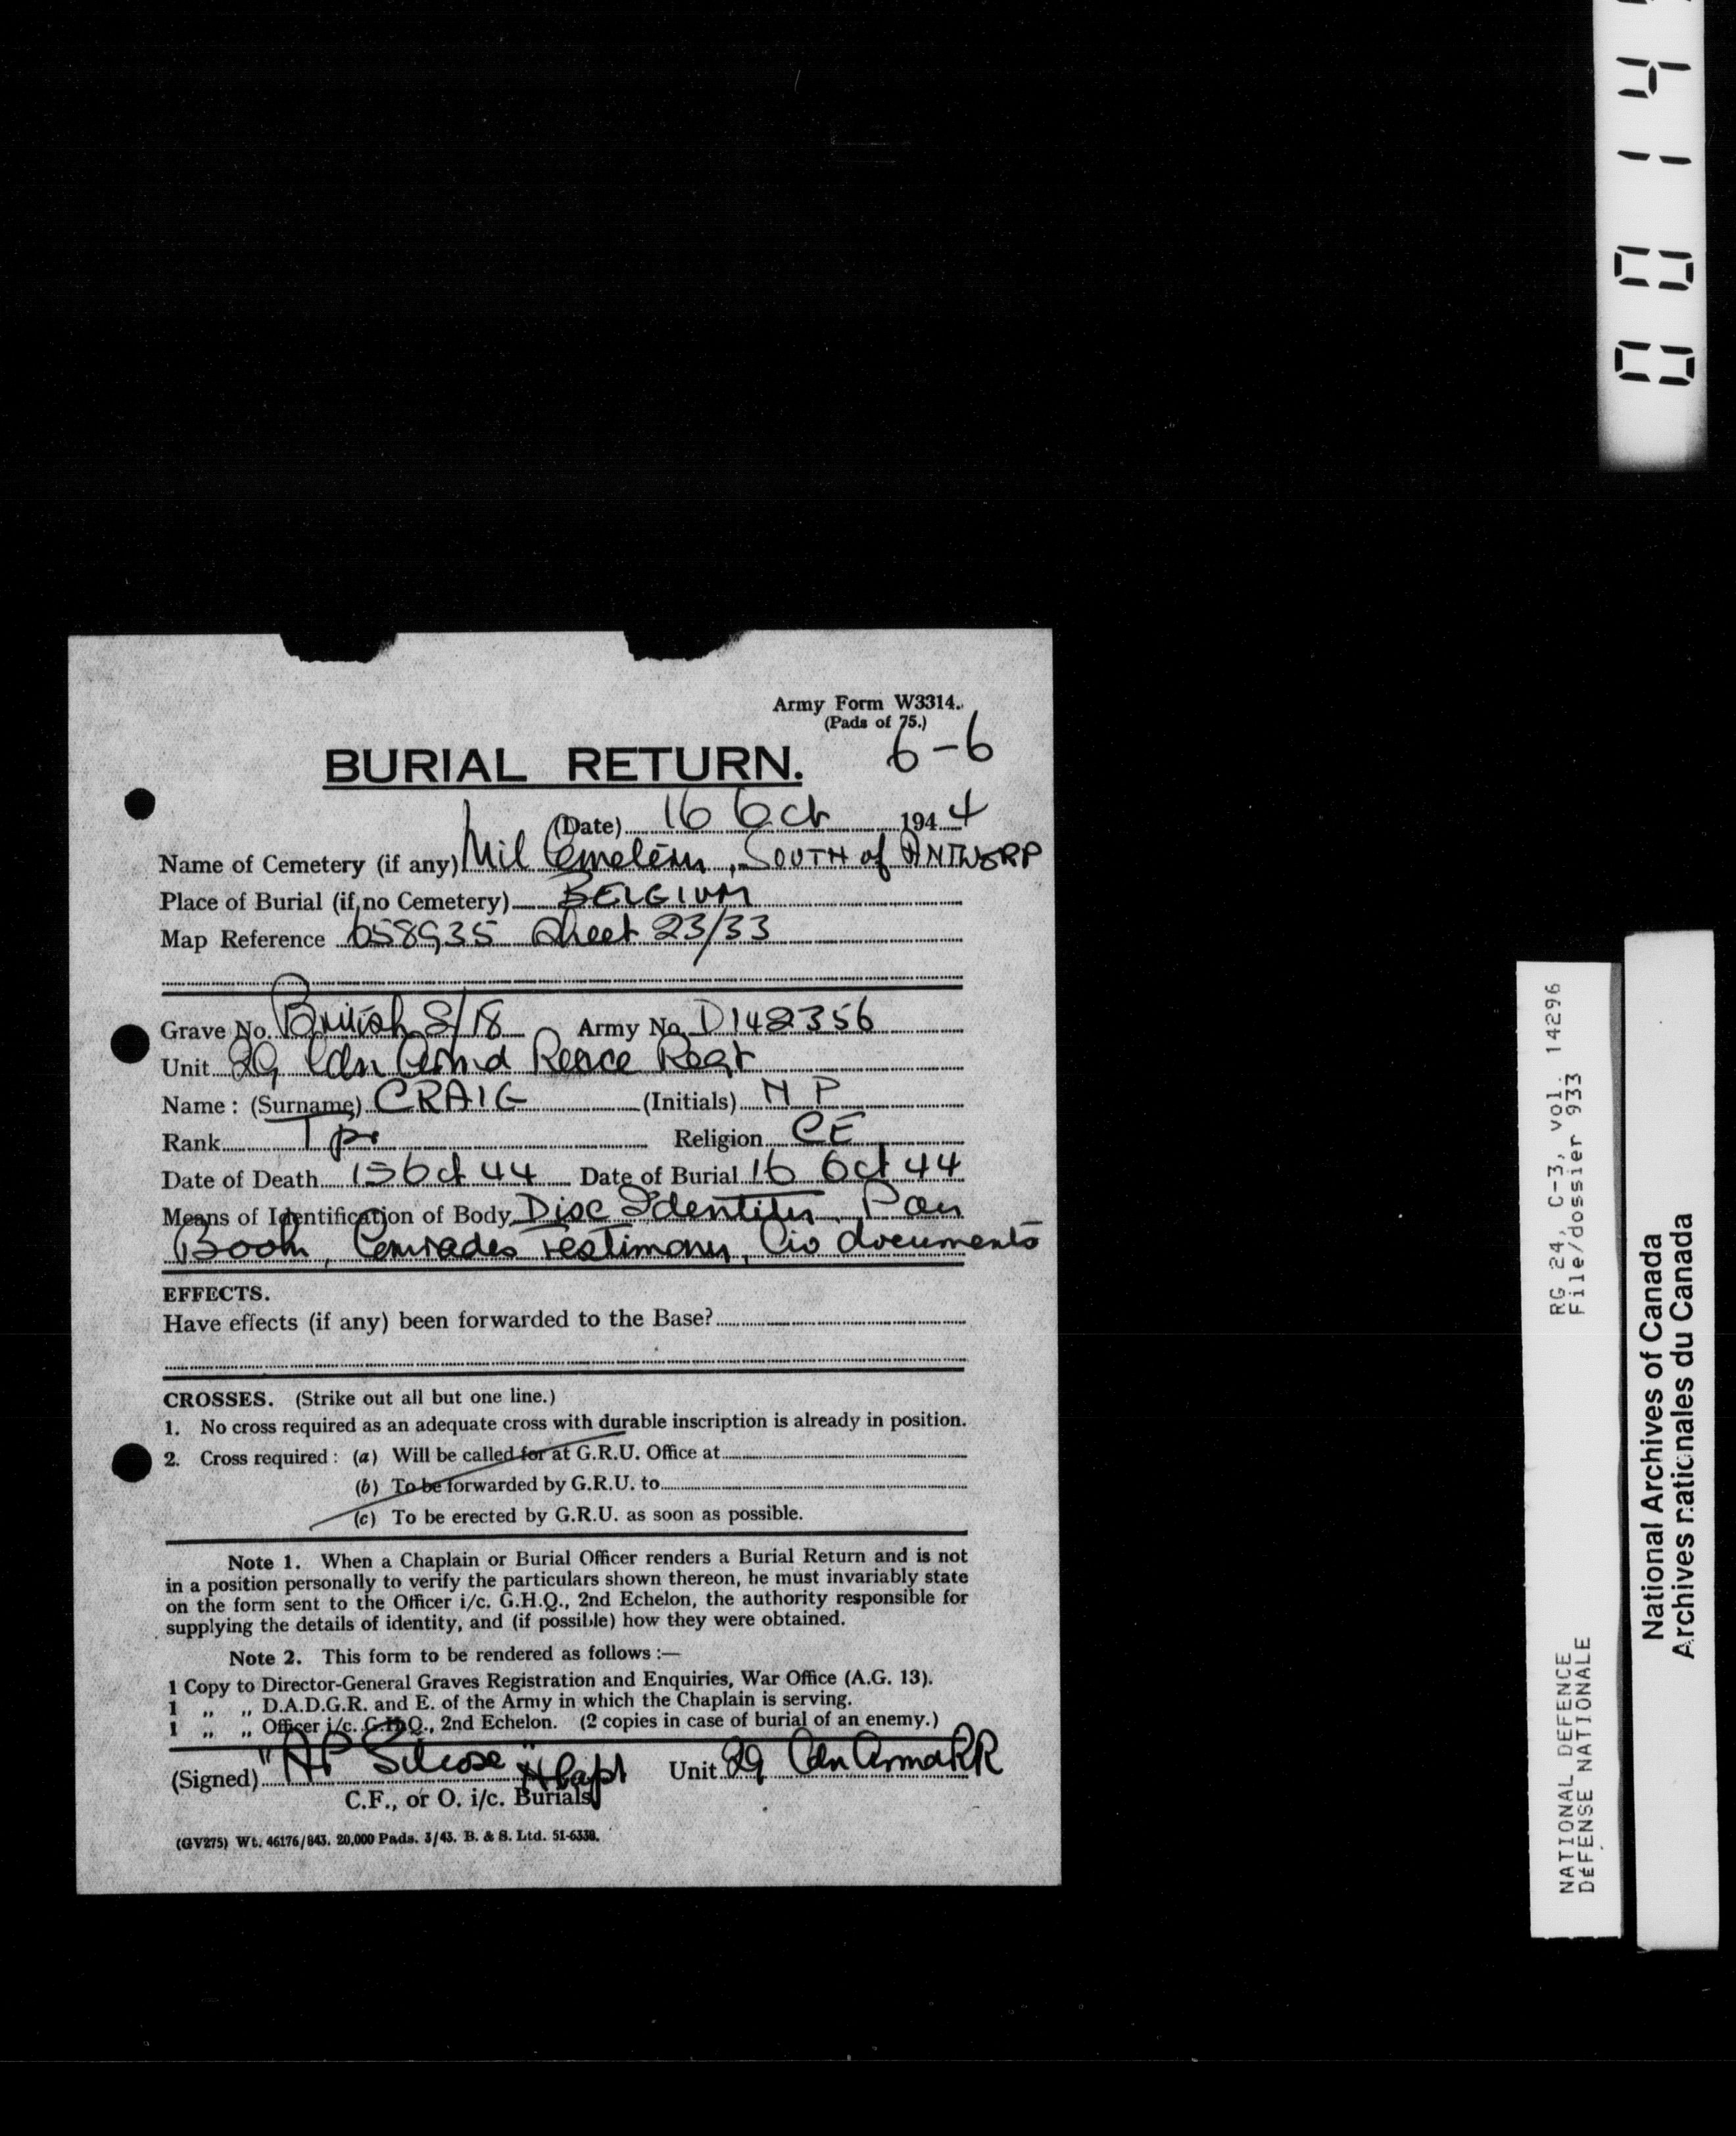 Army Form W3314.
(Pads of 75.)
6-6
BURIAL RETURN.
(Date) 16 Oct 1944
Name of Cemetery (if any) Mil Cemetery, SOUTH of ANTWERP
Place of Burial (if no Cemetery) BELGIUM
Map Reference 658935 Sheet 23/33
Grave No. British 2/18 Army No. D142356
Unit 29 Cdn Armd Recce Regt
Name: (Surname) CRAIG (Initials) N P
Rank Tpr Religion CE
Date of Death 15 Oct 44 Date of Burial 16 Oct 44
Means of Identification of Body Disc Identity, Pay
Book, Comrades Testimony, documents
EFFECTS.
Have effects (if any) been forwarded to the Base?
CROSSES. (Strike out all but one line.)
1. No cross required as an adequate cross with durable inscription is already in position.
2. Cross required: (a) Will be called for at G.R.U. Office at
(b) To be forwarded by G.R.U. to
(c) To be erected by G.R.U. as soon as possible.
Note 1. When a Chaplain or Burial Officer renders a Burial Return and is not
in a position personally to verify the particulars shown thereon, he must invariably state
on the form sent to the Officer i/c. G.H.Q., 2nd Echelon, the authority responsible for
supplying the details of identity, and (if possible) how they were obtained.
Note 2. This form to be rendered as follows :—
1 Copy to Director-General Graves Registration and Enquiries, War Office (A.G. 13).
1 „ „ D.A.D.G.R. and E. of the Army in which the Chaplain is serving.
1 „ „ Officer i/c. G.H.Q., 2nd Echelon. (2 copies in case of burial of an enemy.)
(Signed) "AP Silcox" H/Capt Unit 29 Cdn Armd RR
C.F., or O. i/c. Burials
(GV275) Wt. 46176/843. 20,000 Pads. 3/43. B. & S. Ltd. 51-6338.
NATIONAL DEFENCE RG 24, C-3, vol. 14296
DéFENSE NATIONALE File/dossier 933
National Archives of Canada
Archives nationales du Canada